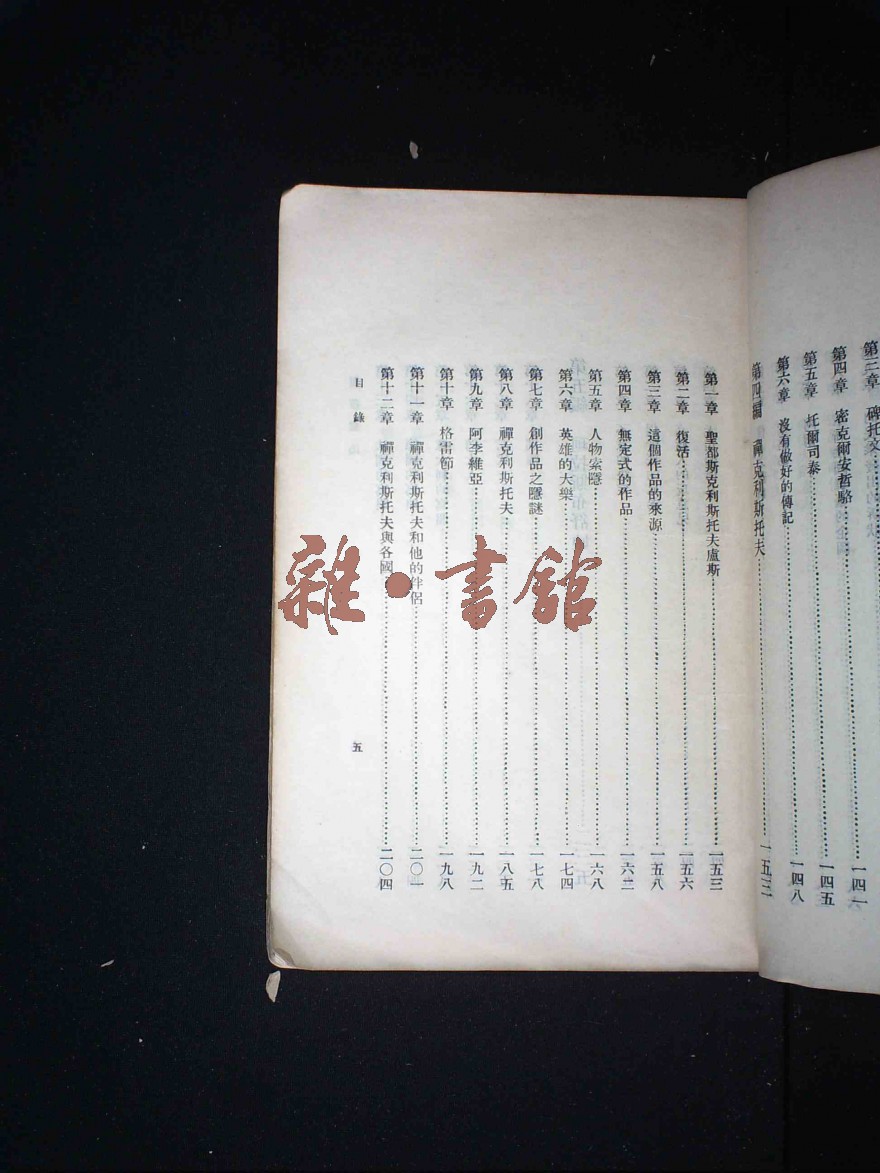 第三章　碑托文……一四一
第四章　密克爾安哲駱
第五章　托爾司泰……一四五
第六章　沒有做好的傳記……一四八
第四編　禪克利斯托夫……一五三
第一章　聖都斯克利斯托夫盧斯……一五三
第二章　復活……一五六
第三章　這個作品的來源……一五八
第四章　無定式的作品……一六二
第五章　人物案隱……一六八
第六章　英雄的大樂……一七四
第七章　創作品之隱謎……一七八
第八章　禪克利斯托夫……一八五
第九章　阿李維亞……一九二
第十章　格雷節……一九八
第十一章　禪克利斯托夫和他的伴侶……二〇一
第十二章　禪克利斯托夫與各國……二〇四
目錄
五
雜·書館